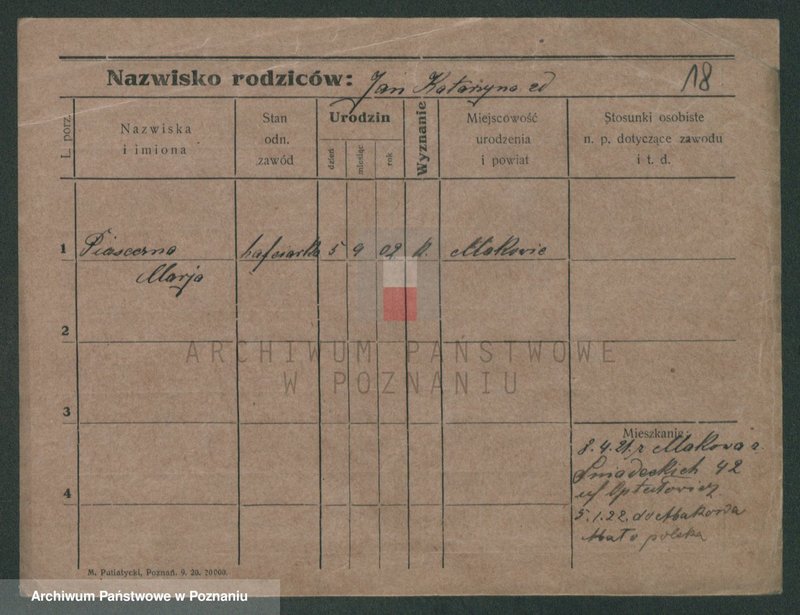 Nazwisko rodziców: Jan Katarzyna 18
L. porz.
Nazwiska
i imiona
Stan
odn.
zawód
Urodzin
dzień
miesiąc
rok
Wyznanie
Miejscowość
urodzenia
i powiat
Stosunki osobiste
n. p. dotyczące zawodu
i t. d.
1 Piaseczna hafciarka 5 9 02 Makowie
Marja
2
ARCHIWUM PAŃSTWOWE
W POZNANIU
3
Mieszkania:
8.4.21. z Makowa
Śniadeckich 42
4
5.1.22. do Makowa
Mało polska
M. Putiatycki, Poznań. 9. 20. 20000.
Archiwum Państwowe w Poznaniu